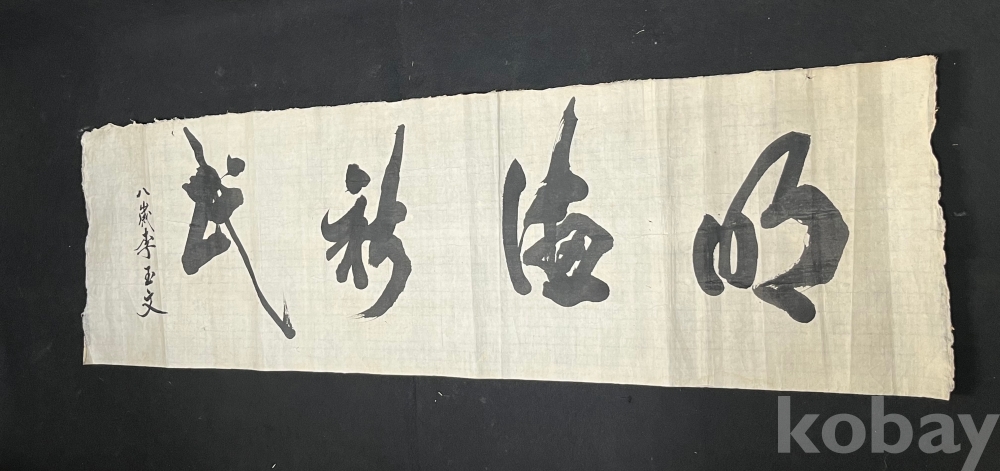 明德新民
八歲李玉文
kobay